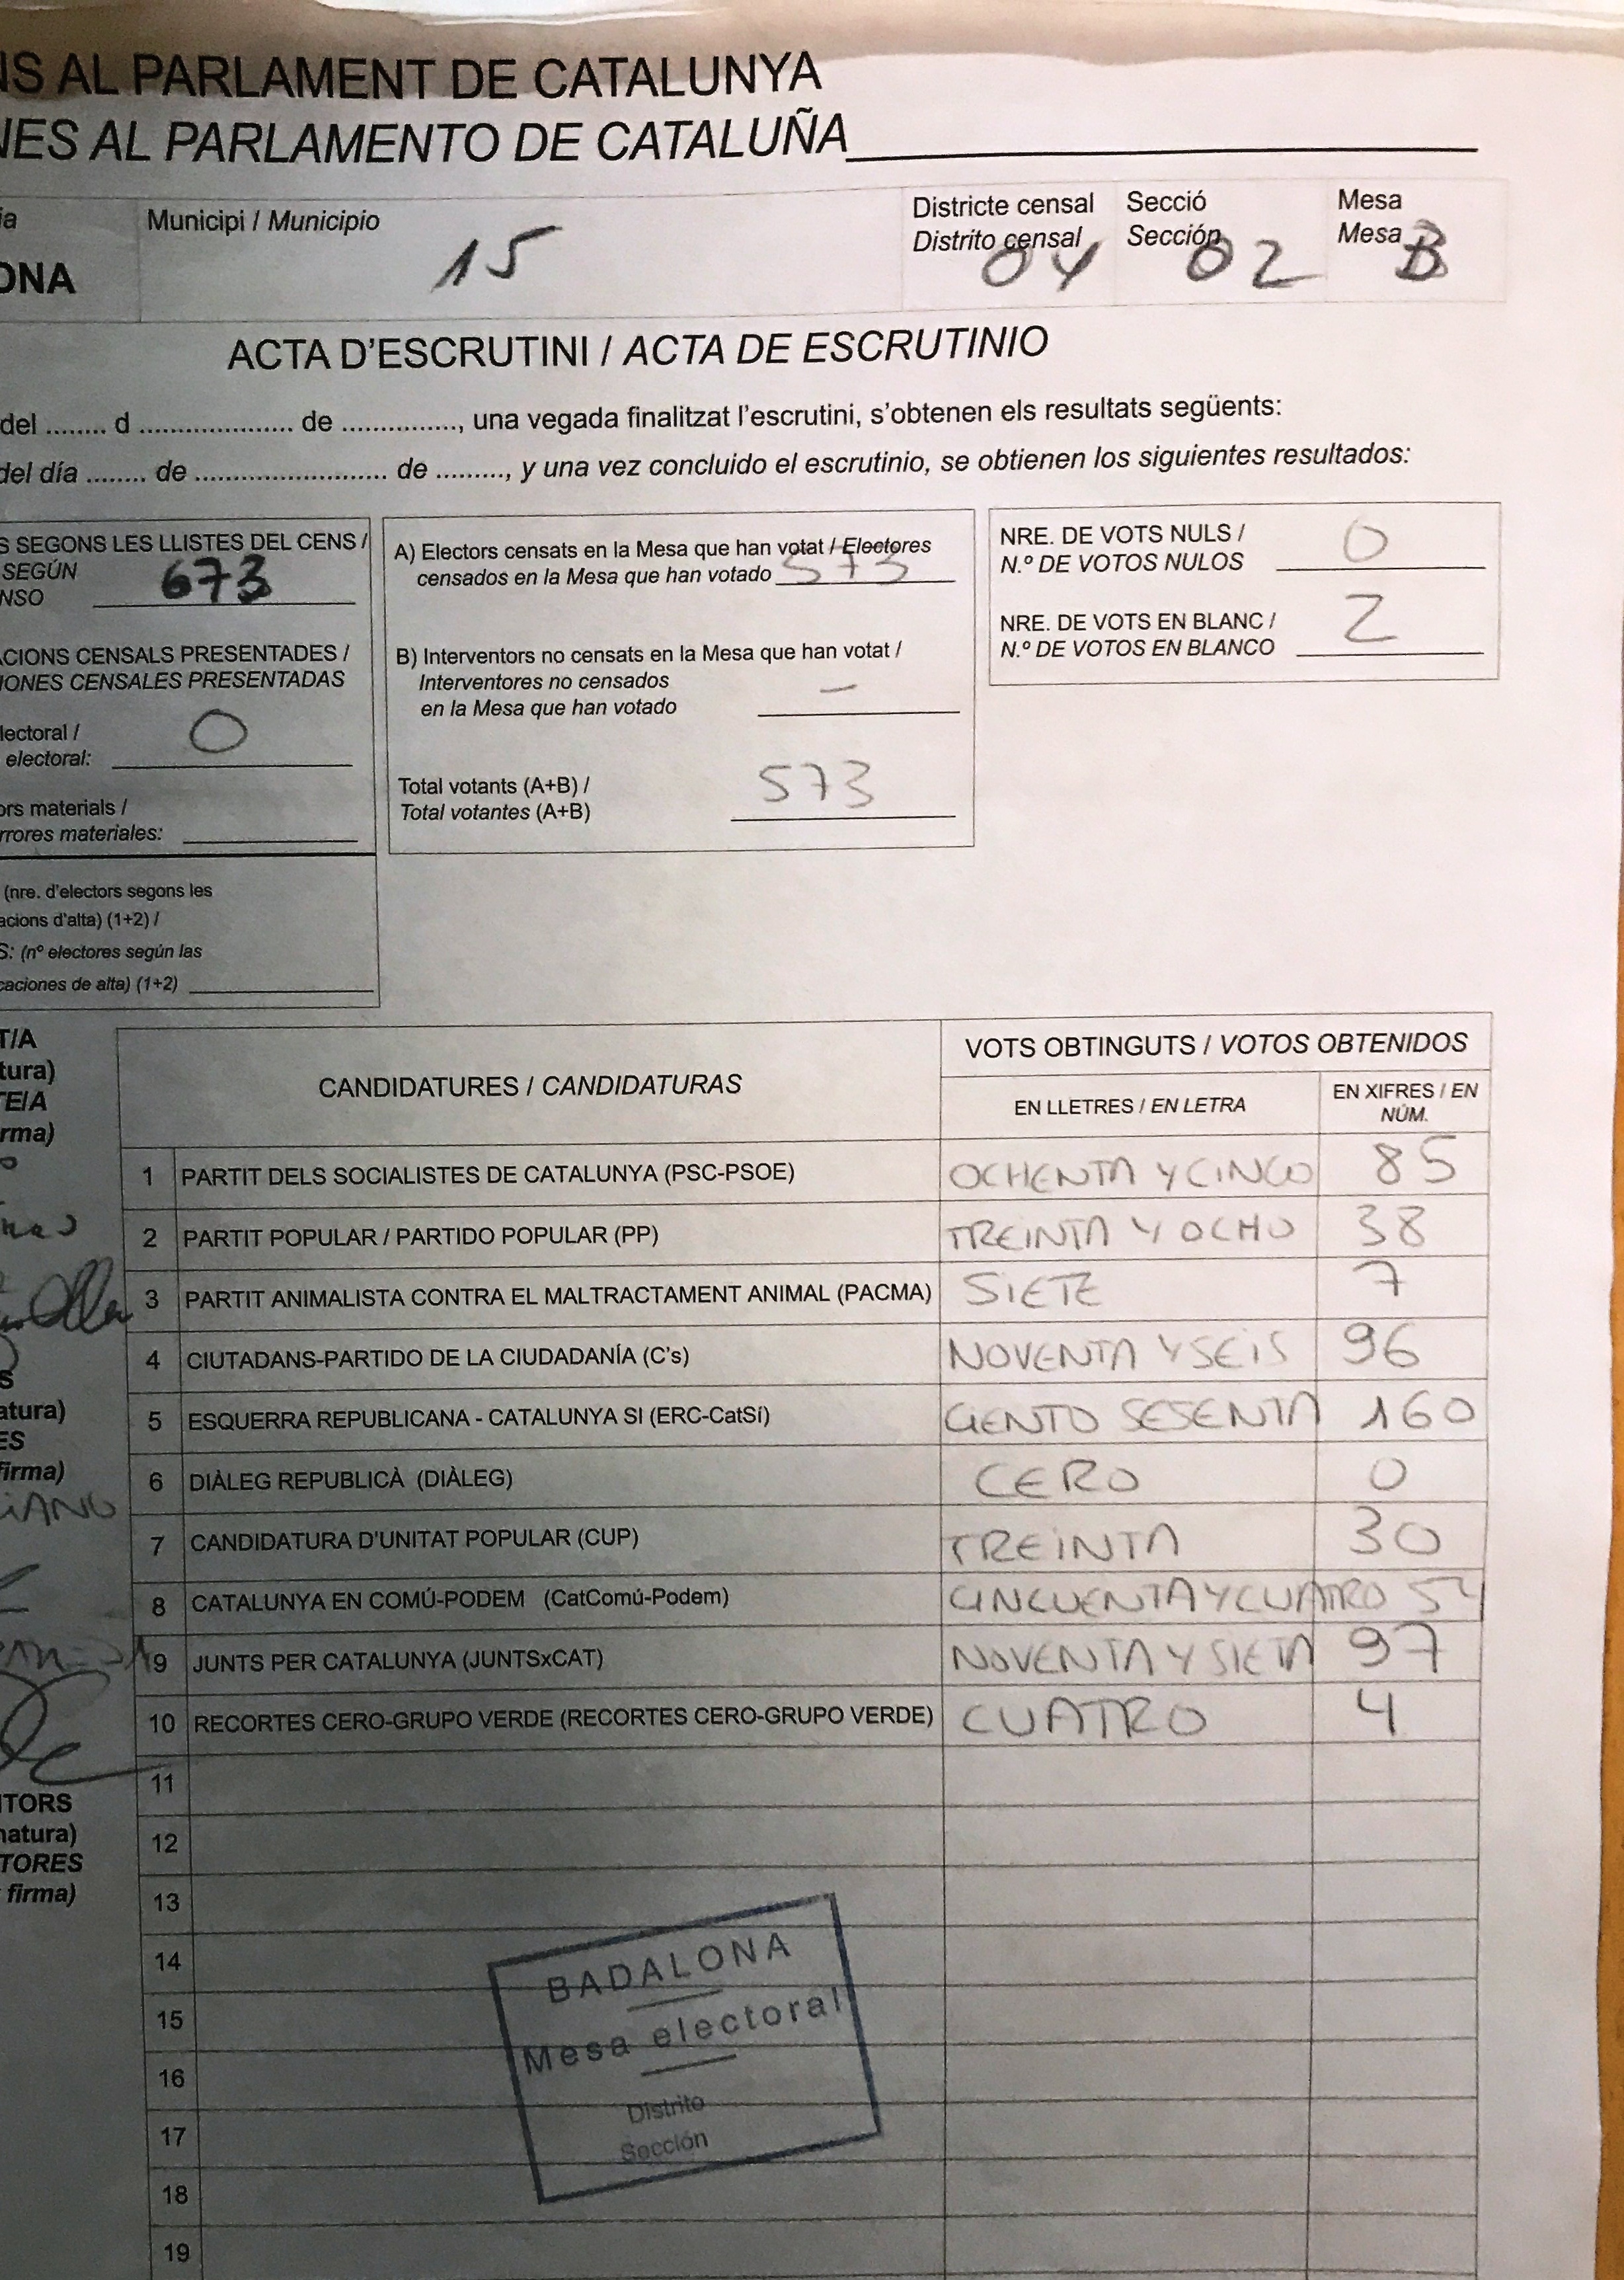 NS AL PARLAMENT DE CATALUNYA
NES AL PARLAMENTO DE CATALUÑA
ia
Municipi / Municipio
Districte censal
Distrito censal
Secció
Sección
Mesa
Mesa
ONA
15
04
02
B
ACTA D'ESCRUTINI / ACTA DE ESCRUTINIO
del ........ d .................... de ............, una vegada finalitzat l'escrutini, s'obtenen els resultats següents:
del día ........ de ........................ de ........, y una vez concluido el escrutinio, se obtienen los siguientes resultados:
S SEGONS LES LLISTES DEL CENS /
SEGÚN
NSO
673
CIONS CENSALS PRESENTADES /
IONES CENSALES PRESENTADAS
lectoral /
electoral:
0
ors materials /
rrores materiales:
(nre. d'electors segons les
acions d'alta) (1+2) /
S: (nº electores según las
caciones de alta) (1+2)
A) Electors censats en la Mesa que han votat / Electores
censados en la Mesa que han votado
573
B) Interventors no censats en la Mesa que han votat /
Interventores no censados
en la Mesa que han votado
–
Total votants (A+B) /
Total votantes (A+B)
573
NRE. DE VOTS NULS /
N.º DE VOTOS NULOS
0
NRE. DE VOTS EN BLANC /
N.º DE VOTOS EN BLANCO
2
CANDIDATURES / CANDIDATURAS
VOTS OBTINGUTS / VOTOS OBTENIDOS
EN LLETRES / EN LETRA
EN XIFRES / EN
NÚM.
1 PARTIT DELS SOCIALISTES DE CATALUNYA (PSC-PSOE) OCHENTA Y CINCO 85
2 PARTIT POPULAR / PARTIDO POPULAR (PP) TREINTA Y OCHO 38
3 PARTIT ANIMALISTA CONTRA EL MALTRACTAMENT ANIMAL (PACMA) SIETE 7
4 CIUTADANS-PARTIDO DE LA CIUDADANÍA (C's) NOVENTA Y SEIS 96
5 ESQUERRA REPUBLICANA - CATALUNYA SI (ERC-CatSí) CIENTO SESENTA 160
6 DIÀLEG REPUBLICÀ (DIÀLEG) CERO 0
7 CANDIDATURA D'UNITAT POPULAR (CUP) TREINTA 30
8 CATALUNYA EN COMÚ-PODEM (CatComú-Podem) CINCUENTA Y CUATRO 54
9 JUNTS PER CATALUNYA (JUNTSxCAT) NOVENTA Y SIETE 97
10 RECORTES CERO-GRUPO VERDE (RECORTES CERO-GRUPO VERDE) CUATRO 4
11
12
13
14
15
16
17
18
19
BADALONA
Mesa electoral
Distrito
Sección
T/A
tura)
TEIA
rma)
S
atura)
ES
firma)
IANO
ITORS
natura)
TORES
firma)